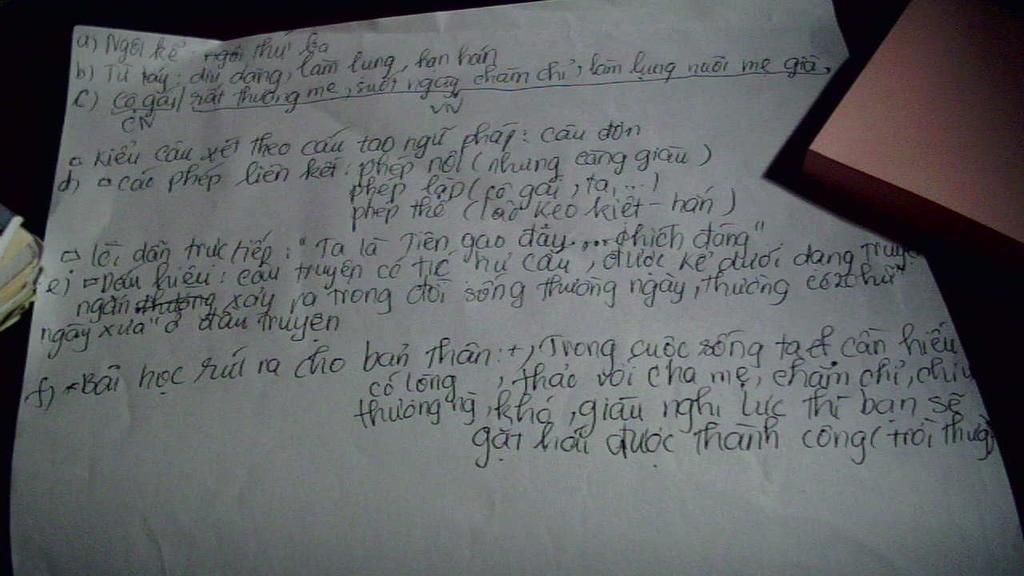 a) Ngôi kể ngôi thứ ba
b) Từ láy: dịu dàng, làm lụng, hơn hớn
c) Cô gái/ rất thương mẹ, suốt ngày chăm chỉ, làm lụng nuôi mẹ già,
CN VN
Kiểu câu xét theo cấu tạo ngữ pháp: câu đơn
d) các phép liên kết: phép nối (nhưng càng giàu)
phép lặp (cô gái, ta, ...)
phép thế (lão keo kiệt - hắn)
lời dẫn trực tiếp: "Ta là Tiên gạo đây.... thích đáng"
e) Dấu hiệu: câu truyện có hư cấu, được kể dưới dạng truyện
ngắn xảy ra trong đời sống thường ngày, thường có
ngày xưa" ở đầu truyện
f) Bài học rút ra cho bản thân: +, Trong cuộc sống ta cần hiếu
có lòng, thảo với cha mẹ, chăm chỉ, chịu
thương ng, khó, giàu nghị lực thì bạn sẽ
gặt hái được thành công (trời thương